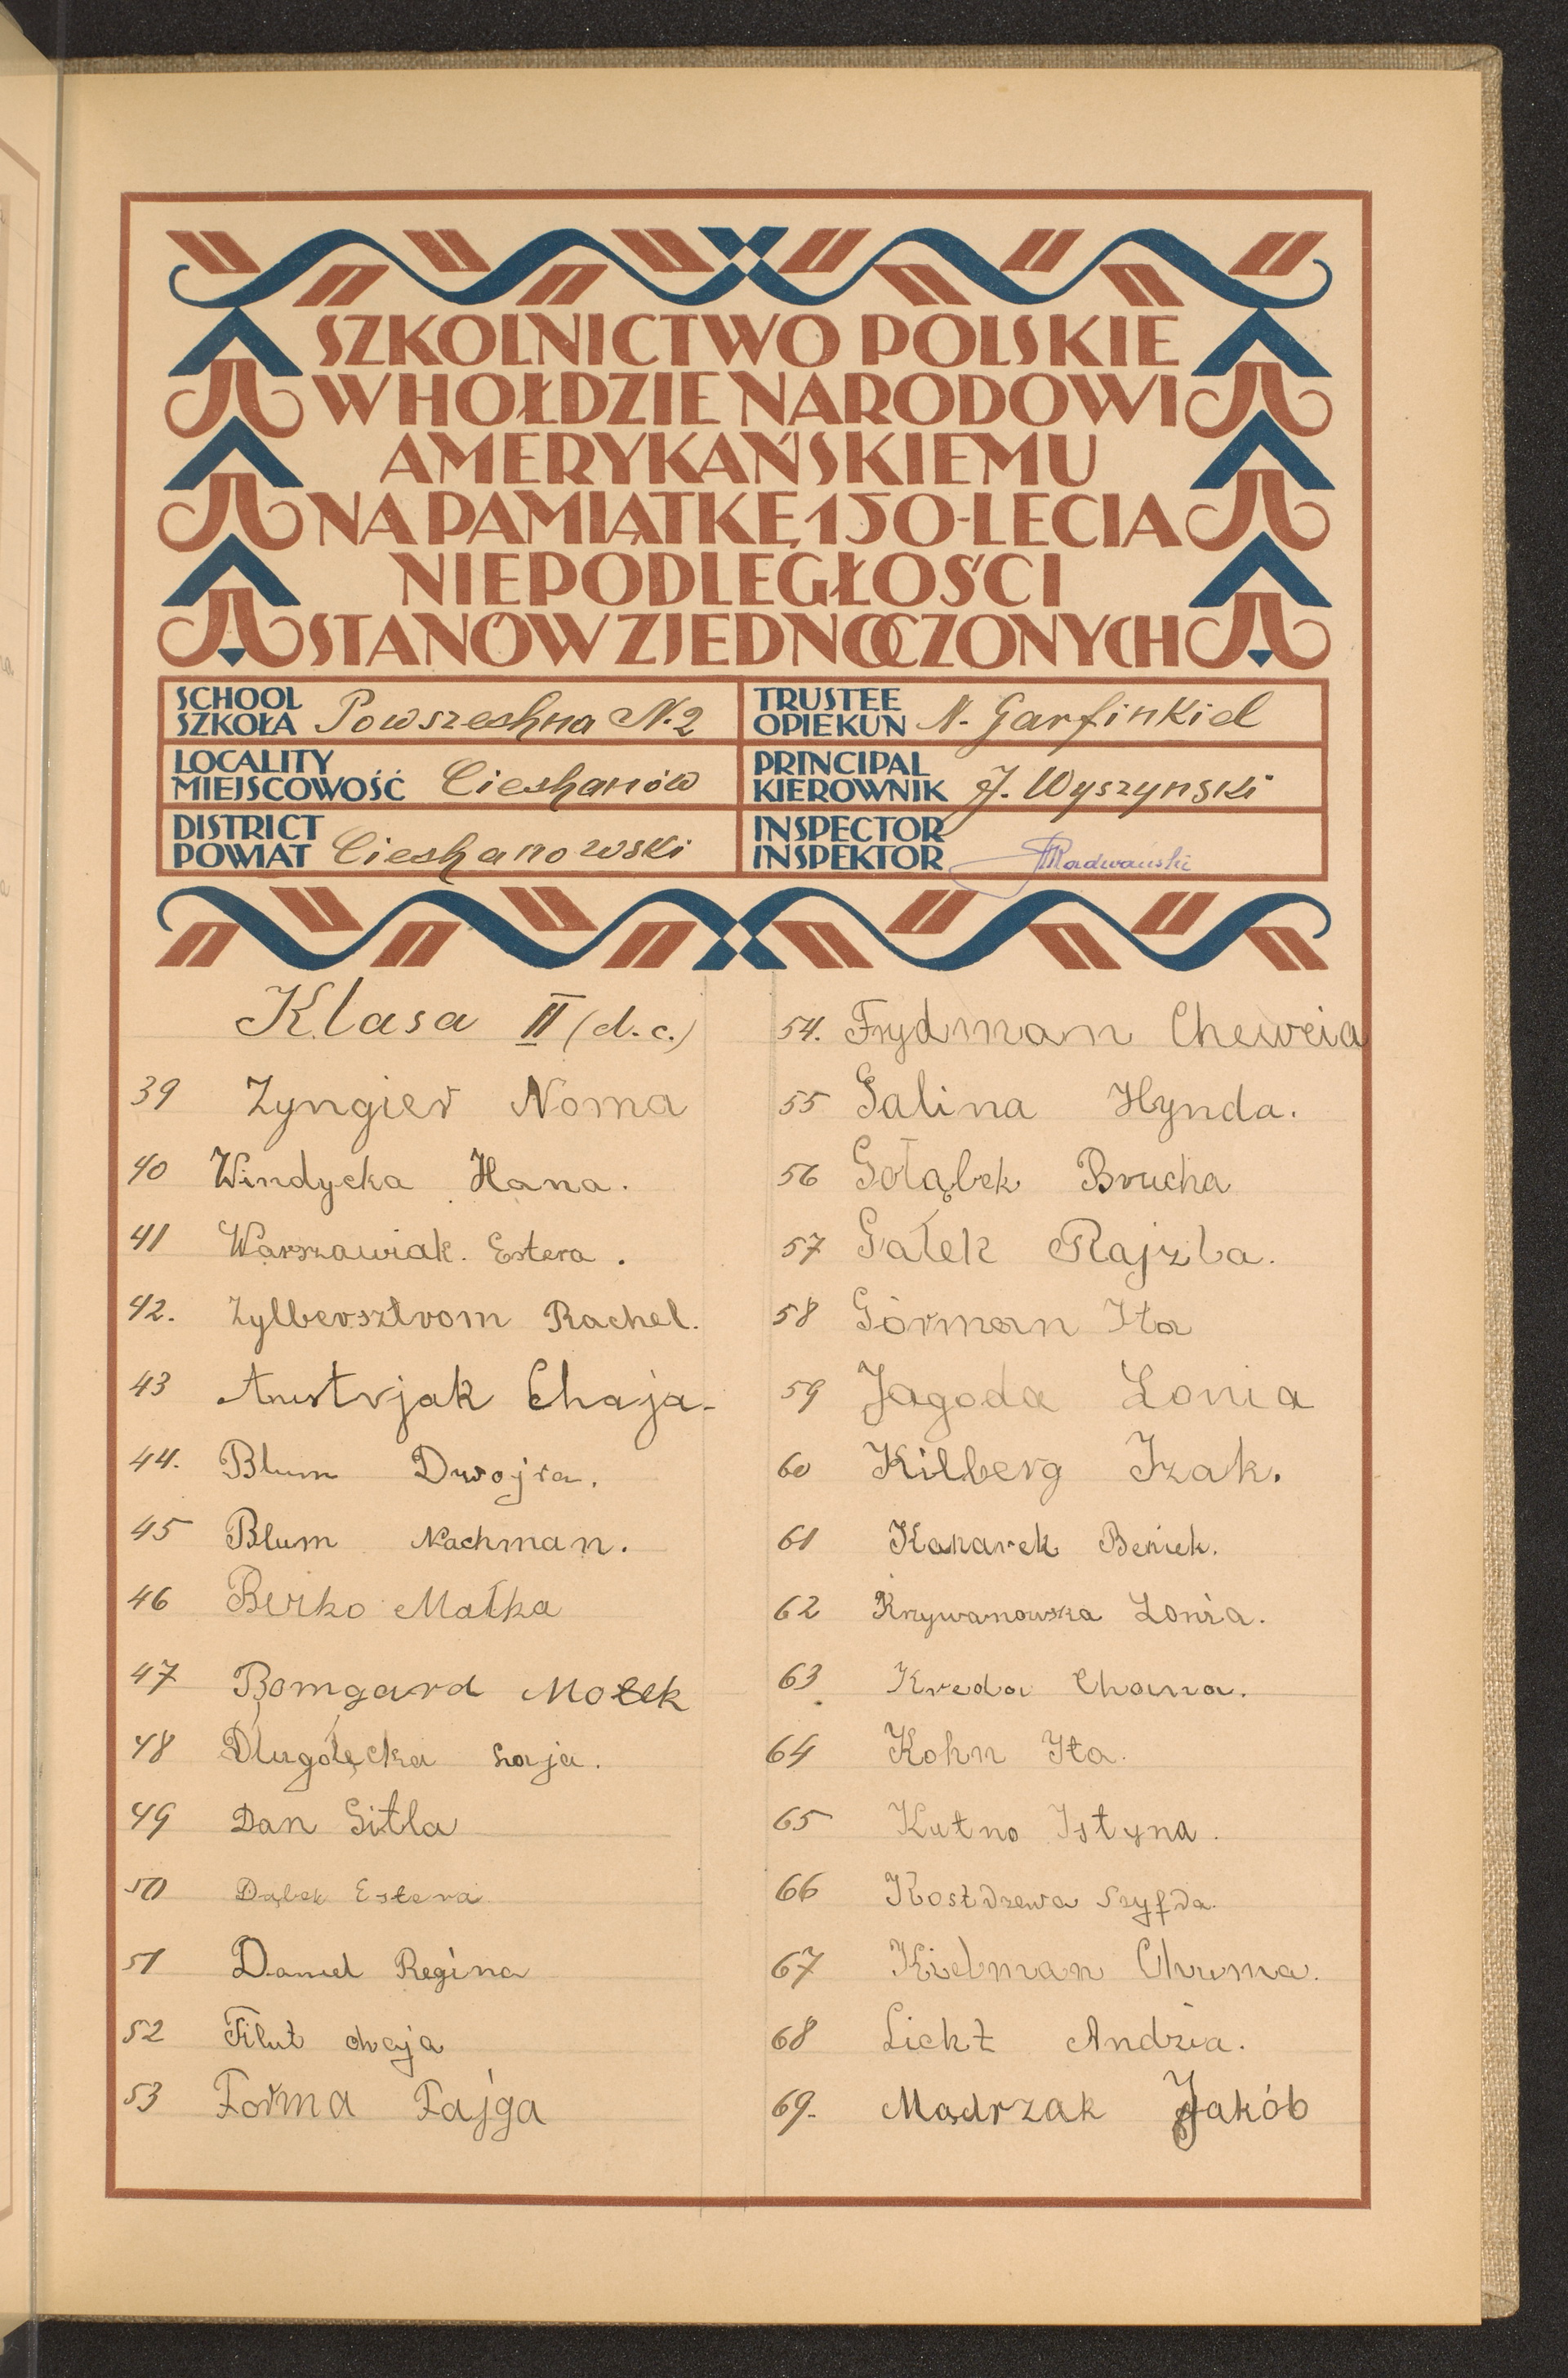 SZKOLNICTWO POLSKIE
W HOŁDZIE NARODOWI
AMERYKAŃSKIEMU
NA PAMIĄTKĘ 150-LECIA
NIEPODLEGŁOŚCI
STANÓW ZJEDNOCZONYCH
SCHOOL
SZKOŁA Powszechna N. 2
TRUSTEE
OPIEKUN N. Garfinkiel
LOCALITY
MIEJSCOWOŚĆ Ciechanów
PRINCIPAL
KIEROWNIK J. Wyszynski
DISTRICT
POWIAT Ciechanowski
INSPECTOR
INSPEKTOR Radwański
Klasa II (d.c.)
39 Zyngier Noma
40 Windycka Hana.
41 Warszawiak. Estera.
42. Zylbersztrom Rachel.
43 Austrjak Chaja.
44. Blum Dwojra.
45 Blum Nachman.
46 Berko Małka
47 Bomgard Moszek
48 Długołęcka Łaja.
49 Dan Gitla
50 Dąbek Estera
51 Daniel Regina
52 Filut chaja
53 Forma Fajga
54. Frydman Chewcia
55 Galina Hynda.
56 Gołąbek Brucha
57 Gałek Rajzla.
58 Górman Ita
59 Jagoda Lonia
60 Kilberg Izak.
61 Kanarek Beniek.
62 Krzywanowska Lonia.
63 Kreda Chana.
64 Kohn Ita.
65 Kutno Istyna.
66 Kostdrzewa Szyfda.
67 Kielman Chuma.
68 Licht Andzia.
69. Mądrzak Jakób